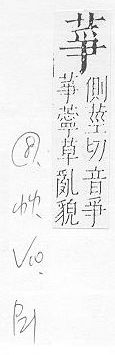 側莖切音爭
薴草亂貌
⑧. 艸 V10. P21